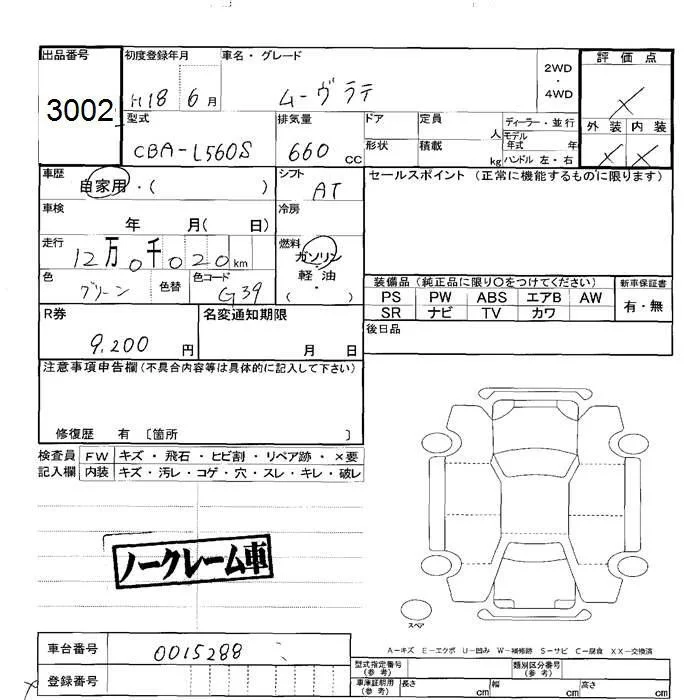 出品番号 初度登録年月 車名・グレード 2WD ・ 4WD 評価点
3002 H18 6月 ムーヴラテ ×
型式 排気量 ドア 定員 人 ディーラー・並行 外装 内装
モデル年式 年
CBA-L560S 660cc 形状 積載 kg ハンドル 左・右 × ×
車歴 シフト セールスポイント (正常に機能するものに限ります)
自家用・( ) AT
車検 冷房
年 月( 日)
走行 燃料
12万0千020km ガソリン
軽油
( )
色 色替 色コード
グリーン G39
装備品 (純正品に限り○をつけてください) 新車保証書
PS PW ABS エアB AW 有・無
SR ナビ TV カワ
R券 名変通知期限 後日品
9,200円 月 日
注意事項申告欄(不具合内容等は具体的に記入して下さい)
修復歴 有 〔箇所 〕
検査員 FW キズ・飛石・ヒビ割・リペア跡・×要
記入欄 内装 キズ・汚レ・コゲ・穴・スレ・キレ・破レ
ノークレーム車
スペア
A-キズ E-エクボ U-凹み W-補修跡 S-サビ C-腐食 XX-交換済
車台番号 0015288
型式指定番号(参考) 類別区分番号(参考)
登録番号
車庫証明用(参考) 長さ cm 幅 cm 高さ cm